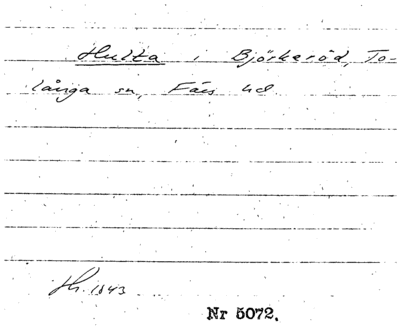 Hulta i Björkeröd, To-
långa sn, Färs hd.
Hr. 1843
Nr 5072.